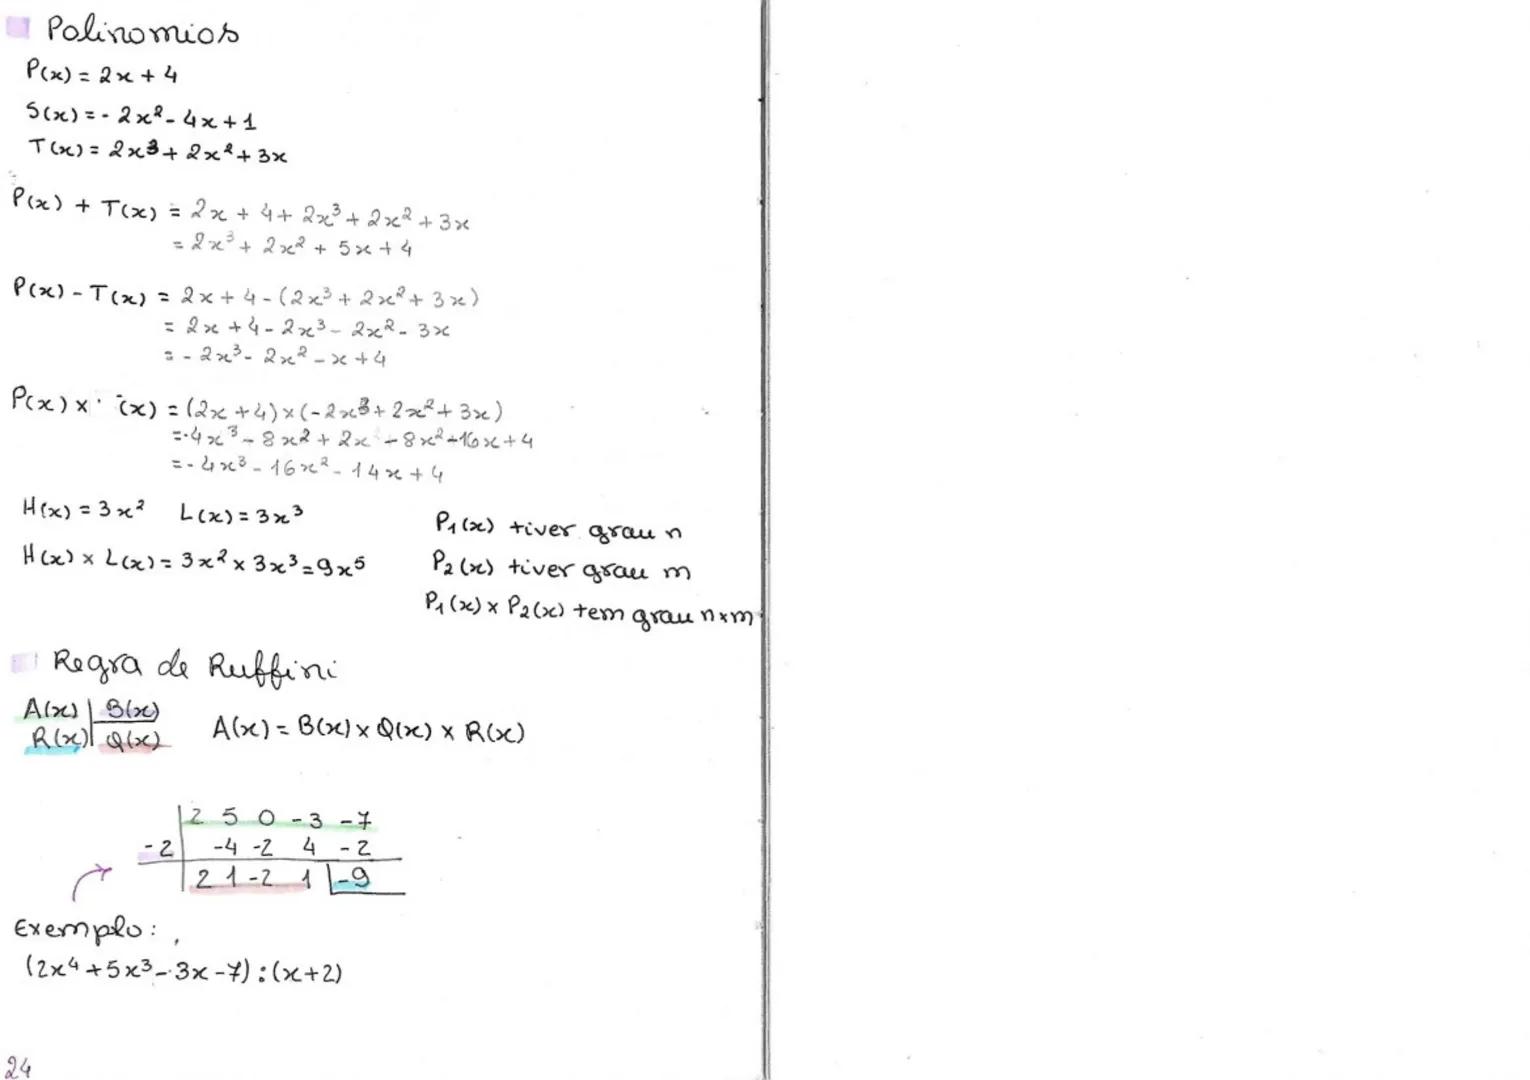 Polinomios
P(x) = 2x + 4
S(x) = - 2x² - 4x + 1
T(x) = 2x³ + 2x² + 3x
P(x) + T(x) = 2x + 4 + 2x³ + 2x² + 3x
= 2x³ + 2x² + 5x + 4
P(x) - T(x) = 2x + 4 - (2x³ + 2x² + 3x)
= 2x + 4 - 2x³ - 2x² - 3x
= - 2x³ - 2x² - x + 4
P(x) x (x) = (2x + 4) x (- 2x³ + 2x² + 3x)
= - 4x³ - 8x² + 2x - 8x² - 16x + 4
= - 4x³ - 16x² - 14x + 4
H(x) = 3x² L(x) = 3x³
H(x) x L(x) = 3x² x 3x³ = 9x⁵
P₁(x) tiver grau n
P₂(x) tiver grau m
P₁(x) x P₂(x) tem grau n x m
Regra de Ruffini
A(x) | B(x)
R(x) | Q(x)
A(x) = B(x) x Q(x) x R(x)
2 5 0 -3 -7
-2 | -4 -2 4 -2
2 1 -2 1 | -9
Exemplo:
(2x⁴ + 5x³ - 3x - 7) : (x + 2)
24